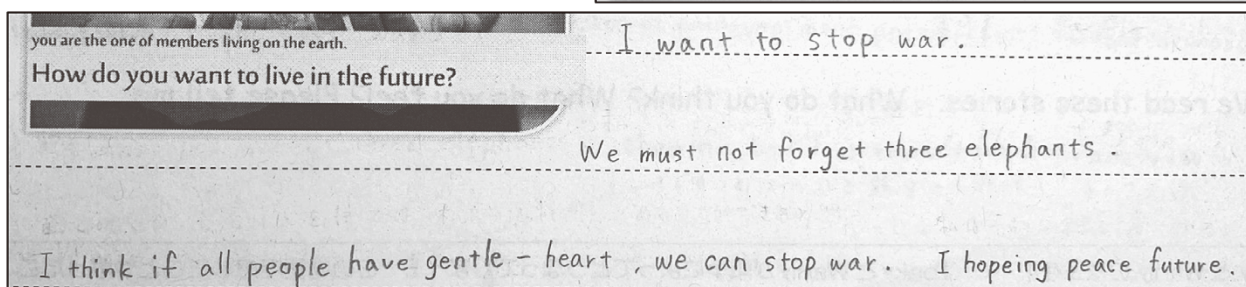 you are the one of members living on the earth.
How do you want to live in the future?
I want to stop war.
We must not forget three elephants.
I think if all people have gentle - heart, we can stop war. I hopeing peace future.